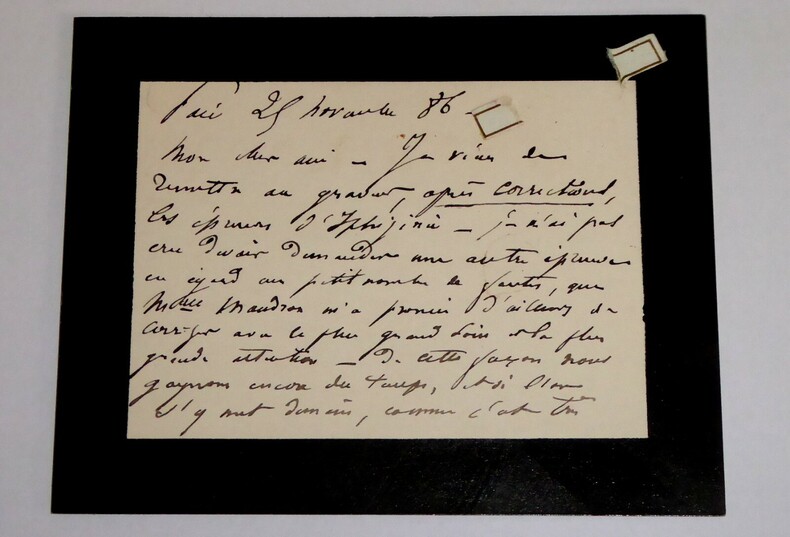 Paris 25 novembre 86 –
Mon cher ami – Je viens de
remettre au graveur, après corrections,
les épreuves d'Iphigénie – je n'ai pas
cru devoir demander une autre épreuve
eu égard au petit nombre de fautes, que
Mme m'a promis d'ailleurs de
corriger avec le plus grand soin et la plus
grande attention – De cette façon nous
gagnons encore du temps, et si l'on
s'y met demain, comme c'est très